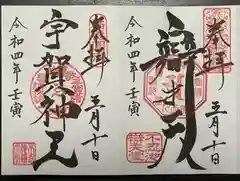 奉拝
五月十日
宇賀神王
令和四年壬寅
奉拝
五月十日
辯才天
令和四年壬寅